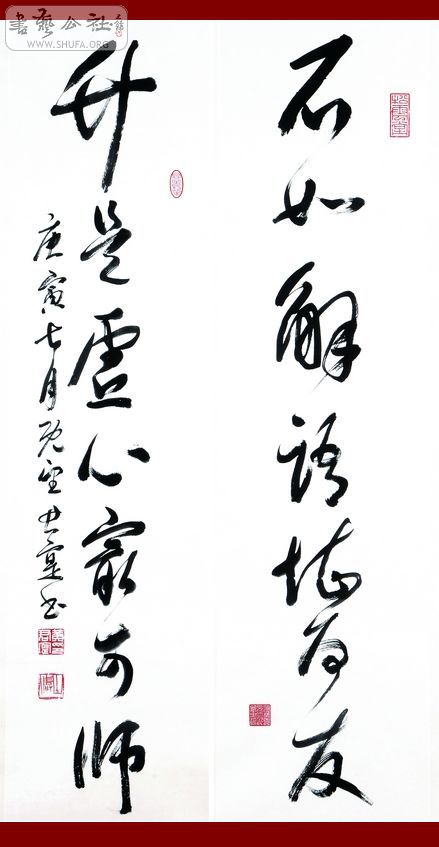 書藝公社
WWW.SHUFA.ORG
石如解語堪為友
竹是虛心最可師
庚寅七月既望書